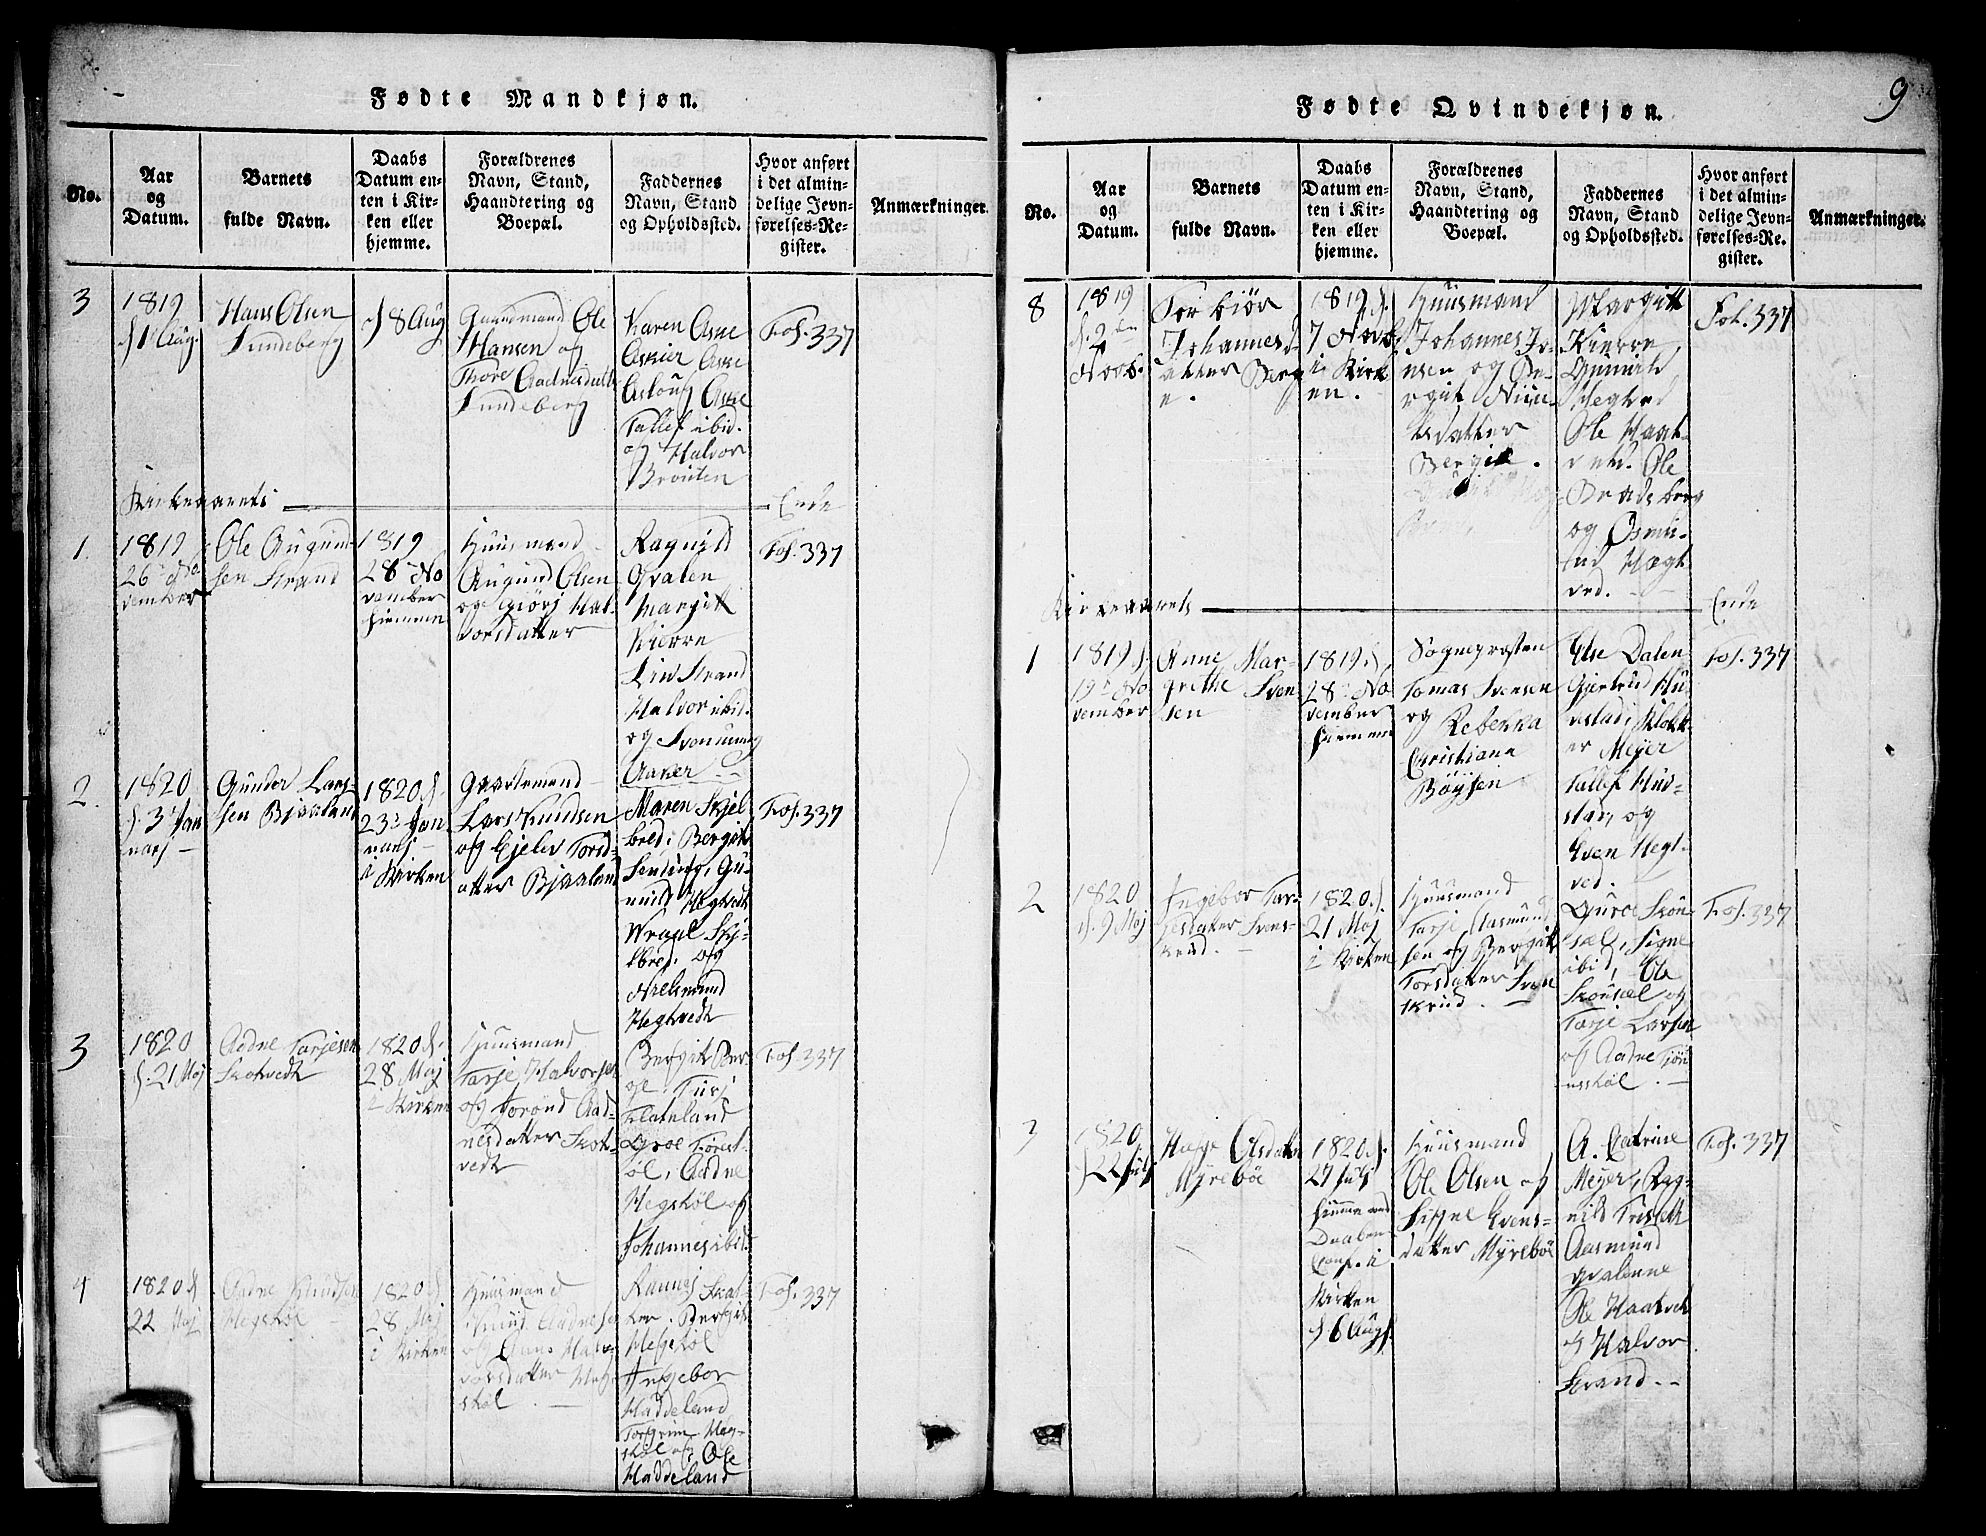 Fødte Mandkjøn.
No.
Aar
og
Datum.
Barnets
fulde Navn.
Daabs
Datum en-
ten i Kir-
ken eller
hjemme.
Forældrenes
Navn, Stand,
Haandtering og
Boepæl.
Faddernes
Navn, Stand
og Opholdssted.
Hvor anført
i det almin-
delige Jevn-
førelses-Re-
gister.
Anmærkninger.
3
1819
d 1 Aug.
Hans Olsen
Sundeberg
d 8 Aug
Gaardmand Ole
Hansen og
Thore Aadnesdatter
Sundeberg
Karen Aske
Asloug Aske
Tallef ibid.
og Halvor
Brouten
Fol. 337
Kirkeaarets Ende
1.
1819
26 No
vember
Ole Augund
sen Strand
1819
28 No
vember
hiemme
Huusmand
Augund Olsen
og Giørj Hal
vorsdatter
Ragnild
Qvalen
Margit
Kierre
Liv Strand
Halvor ibid.
og Svennung
Aaker
Fol. 337
2.
1820
d. 3 Jan
uarj
Gunder Lars-
sen Bjaaland
1820 d.
23 Jan
uarj
i Kirken
Lars Knudsen
og Ejelev Torsd-
atter Bjaaland
Maren Skjel
bred, Bergit
Gu-
nuld Hegtvedt
Wraal Skj-
lbred. og
Hegtvedt
Fol. 337
3
1820
d. 21 Maj
Aadne Tarjesen
Skotvedt
1820 d.
28 Maj
i Kirken
Huusmand
Tarje Halvorsen
og Torond Aad-
nesdatter Skot-
vedt
Bergit Ber-
ge, Turj
Flateland
Groe
Aadne
Hegskøl og
Johannes ibid.
Fol. 337
4
1820 d
22 Maj
Aadne Knudsen
Hegskøl
1820 d.
28 Maj
i Kirken
Huusmand
Knud Aadnesen
og
vorsdatter Heg-
skøl
Bergit
Hegskøl
Ingebor
Haddeland
Torgrim Heg-
skøl og Ole
Haddeland
Fol. 337
9
Fødte Qvindekjøn.
No.
Aar
og
Datum.
Barnets
fulde Navn.
Daabs
Datum en-
ten i Kir-
ken eller
hjemme.
Forældrenes
Navn, Stand,
Haandtering og
Boepæl.
Faddernes
Navn, Stand
og Opholdssted.
Hvor anført
i det almin-
delige Jevn-
førelses-Re-
gister.
Anmærkninger.
8
1819
d. 2en
Novb.
Torbiør
Johannesd-
atter Berg
e.
1819 d.
7 Novb.
i Kirk
en.
Huusmand
Johannes Jo-
nsen og
datter
Margit
Kierre,
Gunild
Hegtved
Ole Haat-
vedt. Ole
Bradsberg
og Osmu-
nd Hegt
ved.
Fol. 337
Kirkeaarets Ende
1
1819 d.
19 No
vember
Anne Mar-
grethe Sven
sen
1819 d.
28 No
vember
hiemme
Sognepresten
Tomas Svensen
og Rebekka
Christiana
Bøysen
Else Dalen
Gjertrud Hu-
vestad, Klokk-
er Meyer
Tallef Huv-
stad, og
Even Hegt-
ved.
Fol. 337
2
1820
d. 9 Maj
Ingebor Tar-
jesdatter Svens-
krud.
1820 d.
21 Maj
i Kirken
Huusmand
Tarje Aasmund
sen og Bergit
Torsdatter Sven
skrud.
Guroe
Signe
ibid, Ole
og
Tarje Larsen
og Aadne
Fol. 337
3
1820
d 22 Julj
Helge Olsdatter
Myrebøe
1820 d.
27 Julj
hiemme med
Daaben
Conf. i
Kirken
d 6 Augs.
Huusmand
Ole Olsen og
Signe Evens-
datter Myrebøe
A. Catrine
Meyer, Rag-
nild
Aasmund
Qvalenne
Ole Haatvedt
og Halvor
Strand
Fol. 337